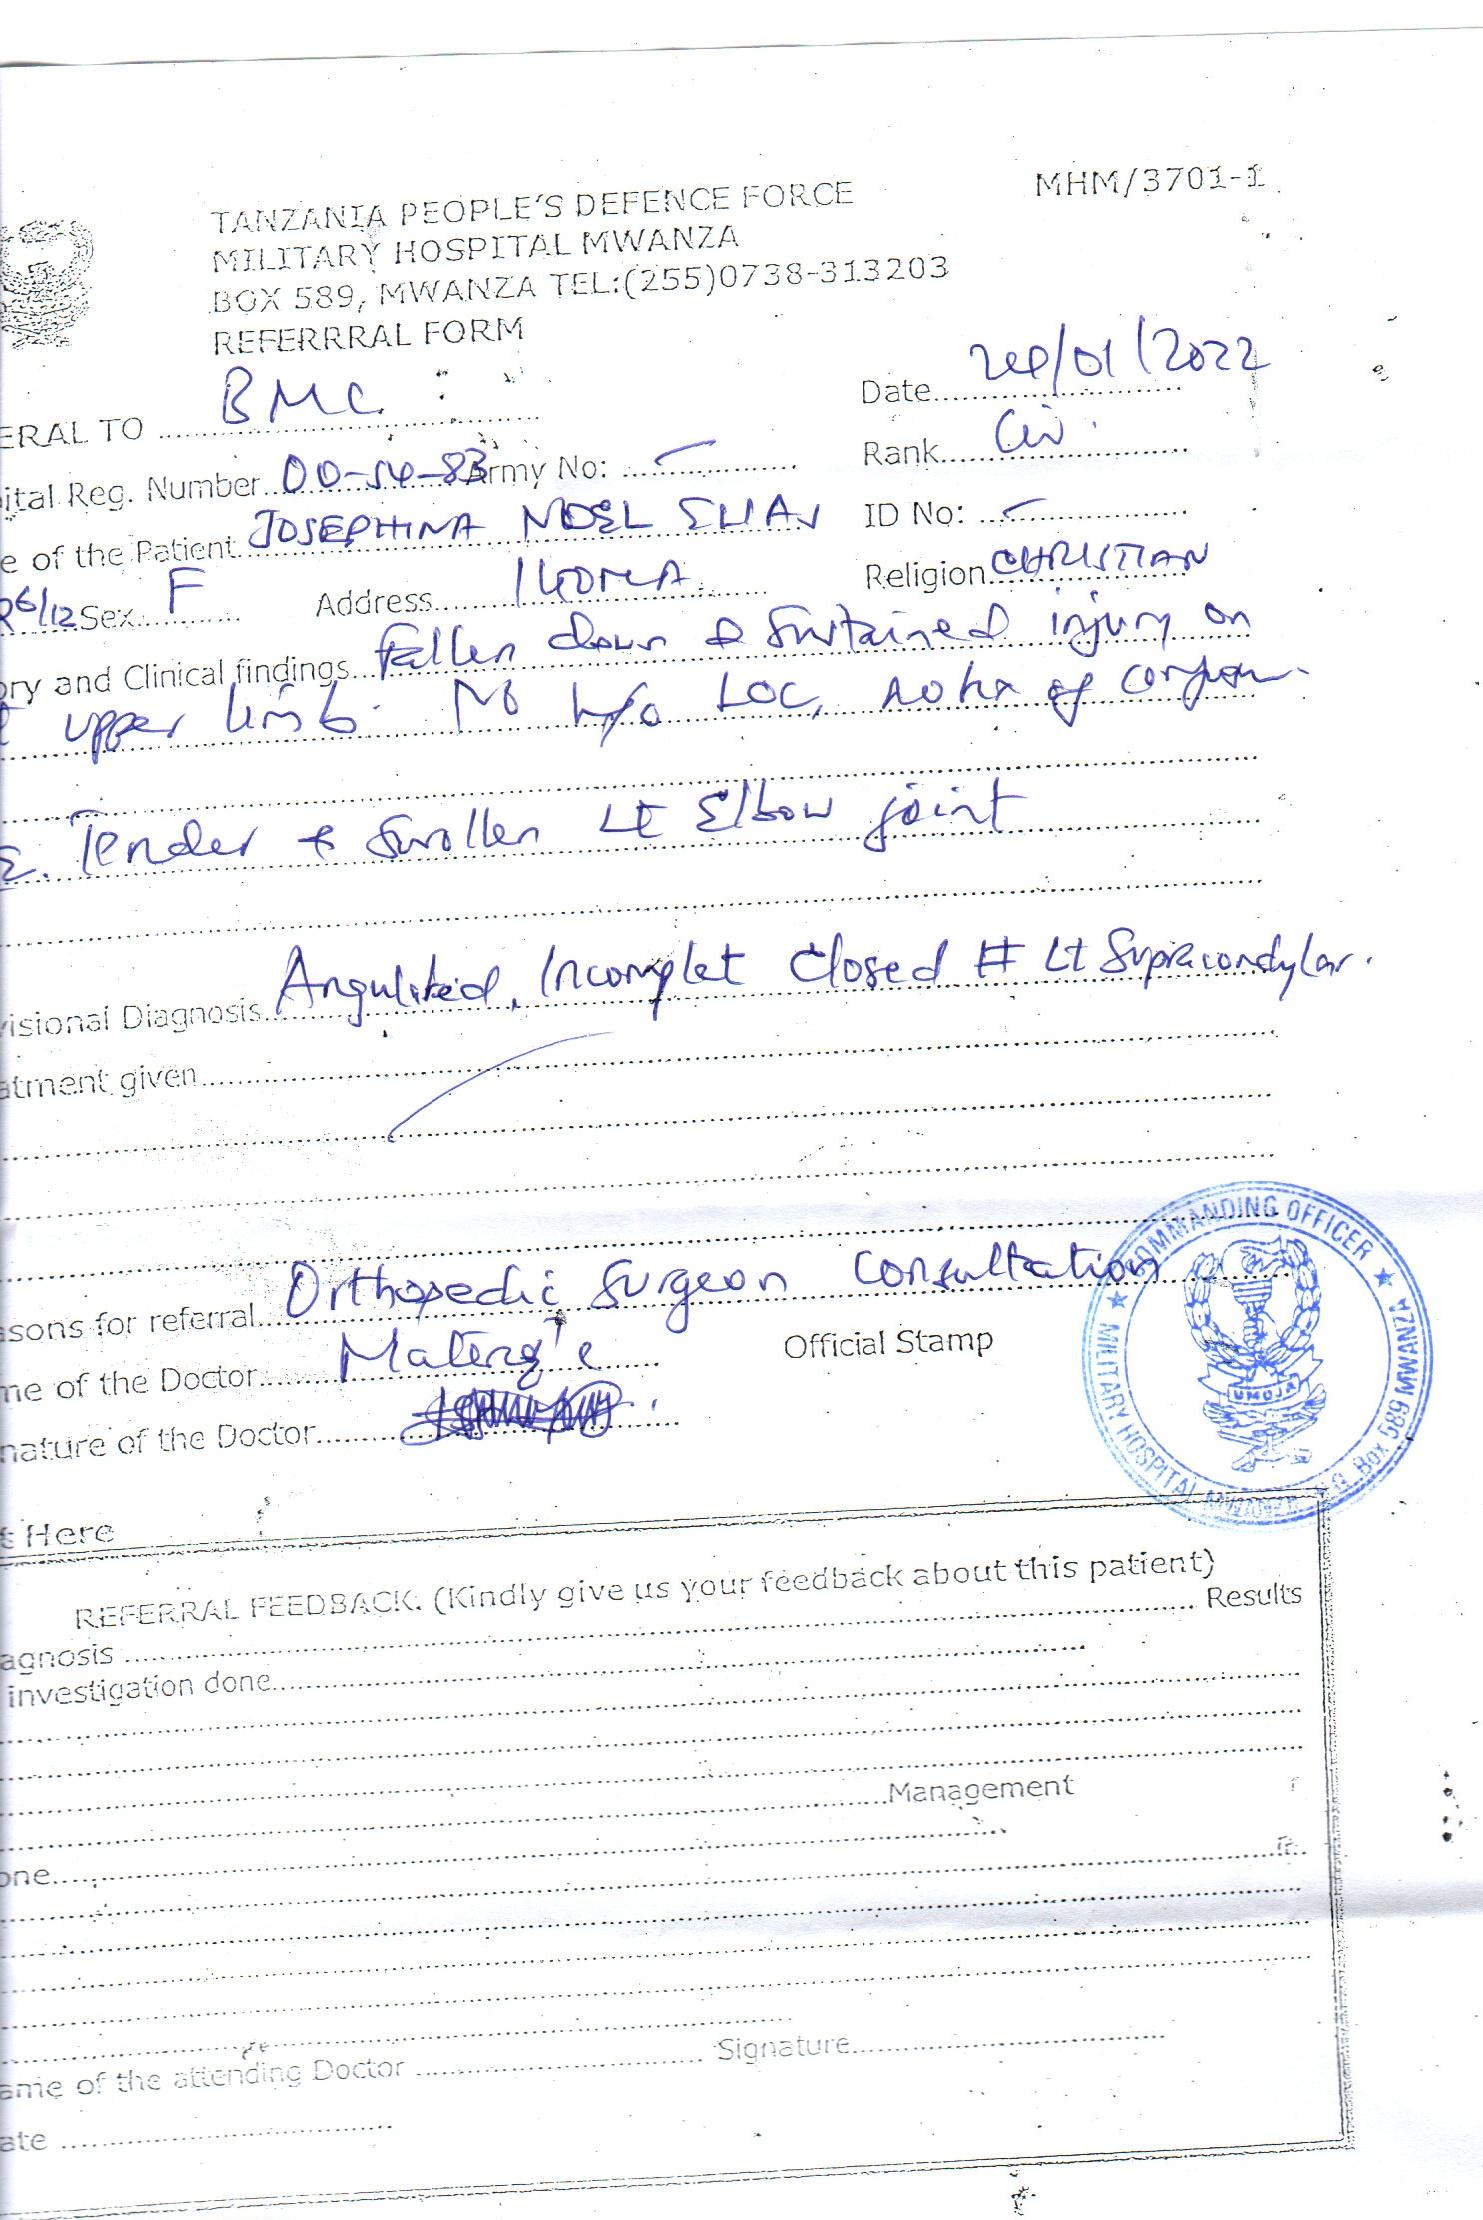 MHM/3701-1
TANZANIA PEOPLE'S DEFENCE FORCE
MILITARY HOSPITAL MWANZA
BOX 589, MWANZA TEL:(255)0738-313203
REFERRRAL FORM
ERAL TO BMC Date /01/2022
ital Reg. Number 00-54-83 Army No: — Rank Civ.
e of the Patient JOSEPHINA NOEL ELIAS ID No: —
6/12 Sex F Address IKOMA Religion CHRISTIAN
ory and Clinical findings Fallen down & sustained injury on
upper limb. No h/o LOC, no hx of
Tender & Swollen Lt Elbow joint
visional Diagnosis Angulated, Incomplet closed # Lt Supracondylar.
atment given
asons for referral Orthopedic Surgeon Consultation
me of the Doctor Official Stamp
nature of the Doctor
★ COMMANDING OFFICER ★
MILITARY HOSPITAL MWANZA P.O. Box 589 MWANZA
UMOJA
t Here
REFERRAL FEEDBACK: (Kindly give us your feedback about this patient)
agnosis Results
investigation done
Management
one
ame of the attending Doctor Signature
ate